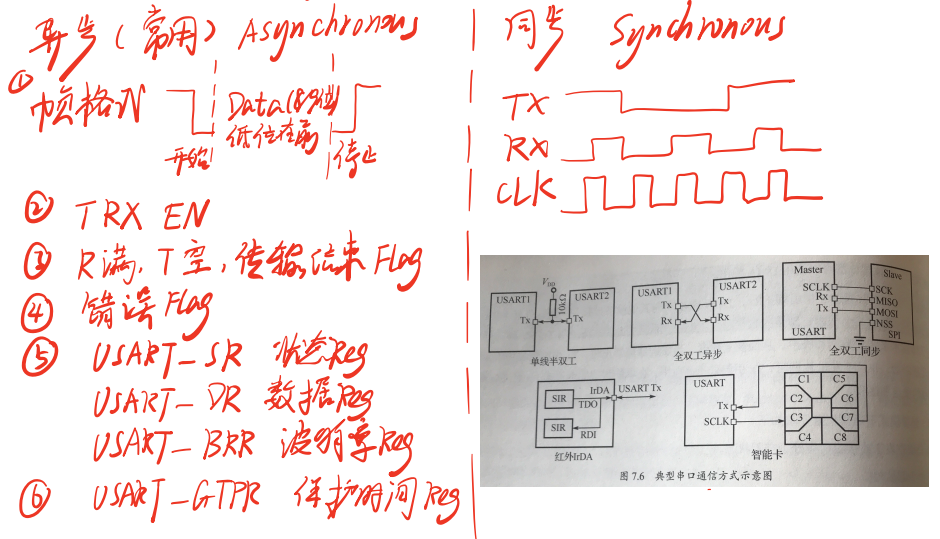 异步(常用) Asynchronous
① 帧格式
Data(8,9位)
低位在前
开始
停止
② TRX EN
③ R满, T空, 传输结束 Flag
④ 错误 Flag
⑤ USART_SR 状态Reg
USART_DR 数据Reg
USART_BRR 波特率Reg
⑥ USART_GTPR 保护时间Reg
同步 Synchronous
TX
RX
CLK
USART1
VDD
10kΩ
USART2
Tx
Tx
单线半双工
USART1
USART2
Tx
Tx
Rx
Rx
全双工异步
Master
Slave
SCLK
SCK
Rx
MISO
Tx
MOSI
NSS
USART
SPI
全双工同步
SIR
IrDA
USART Tx
TDO
SIR
RDI
红外IrDA
USART
Tx
SCLK
C1
C5
C2
C6
C3
C7
C4
C8
智能卡
图 7.6 典型串口通信方式示意图